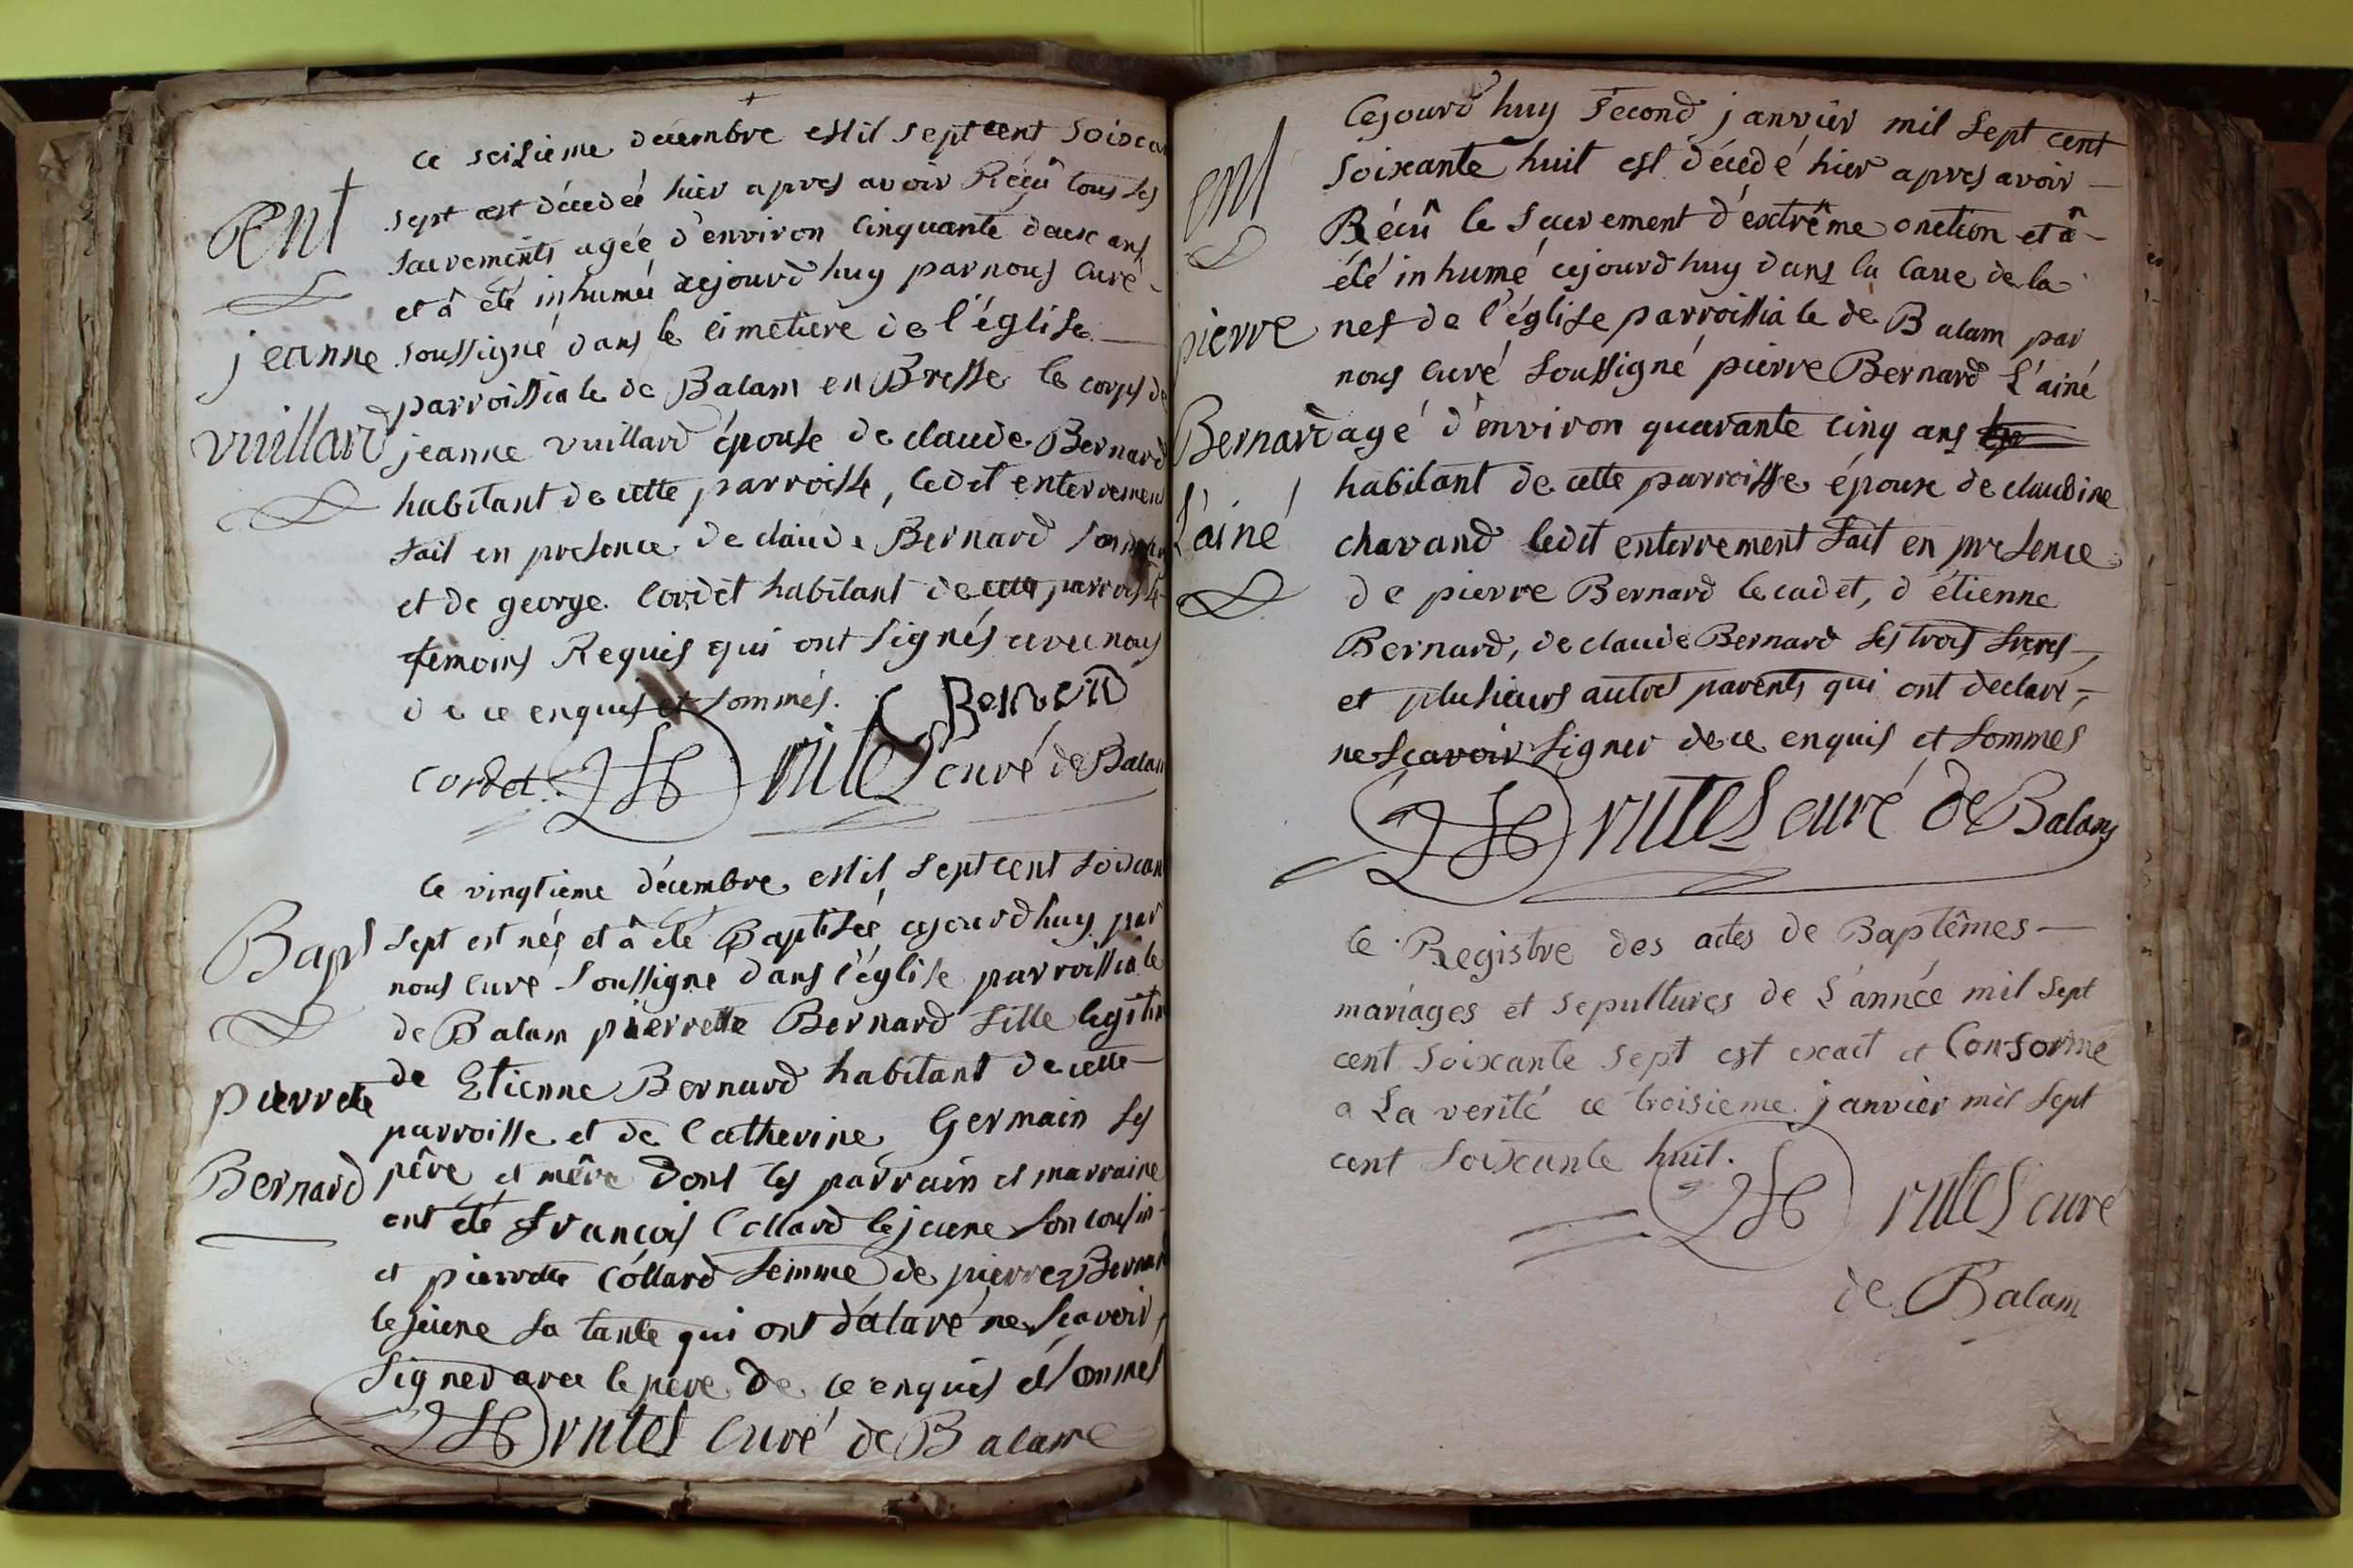 ce seizieme decembre mil sept cent soixan
Ent
sept est décedeé hier apres avoir Réçû tous les
sacrements ageé d'environ Cinquante deux ans
et â été inhumeé cejourd huy par nous Curé
jeanne
soussigné dans le Cimetiere de l'église
parroissiale de Balam en Bresse le corps de
vuillard
jeanne vuillard épouse de claude Bernard
habitant de cette parroisse, ledit enterrement
fait en presence de claude Bernard son
et de george Cordet habitant de cette parroisse
temoins Requis qui ont signés avec nous
de ce enquis et sommés. C Bernard
Cordet. curé de Balam
ce vingtieme décembre mil sept cent soixan
Bapt
sept est neé et â été Baptiseé cejourd huy par
nous Curé soussigné dans l'église parroissiale
de Balam pierrette Bernard fille legitim
de Etienne Bernard habitant de cette
pierrette
parroisse et de Catherine Germain ses
Bernard
pêre et mêre dont les parrain et marraine
ont été François Collard le jeune son cousin
et pierrette Collard femme de pierre Bernard
le jeune sa tante qui ont déclaré ne sçavoir
signer avec le pere de ce enquis et sommes
curé de Balam
Cejourd huy second janvier mil sept cent
ent
soixante huit est décedé hier apres avoir
Réçû le sacrement d'extrême onction et â
été inhumé cejourd huy dans la Cave de la
pierre
nef de l'église parroissiale de Balam par
nous curé soussigné pierre Bernard L'ainé
Bernard
agé d'environ quarante cinq ans
habitant de cette parroisse époux de claudine
L'ainé
chavand ledit enterrement fait en presence
de pierre Bernard le cadet, d'étienne
Bernard, de claude Bernard ses trois freres
et plusieurs autres parents qui ont declaré
ne sçavoir signer de ce enquis et sommés
curé de Balam
le Registre des actes de Baptêmes
mariages et sepultures de L'année mil sept
cent soixante sept est exact et Conforme
a La verité ce troisieme janvier mil sept
cent soixante huit.
curé
de Balam